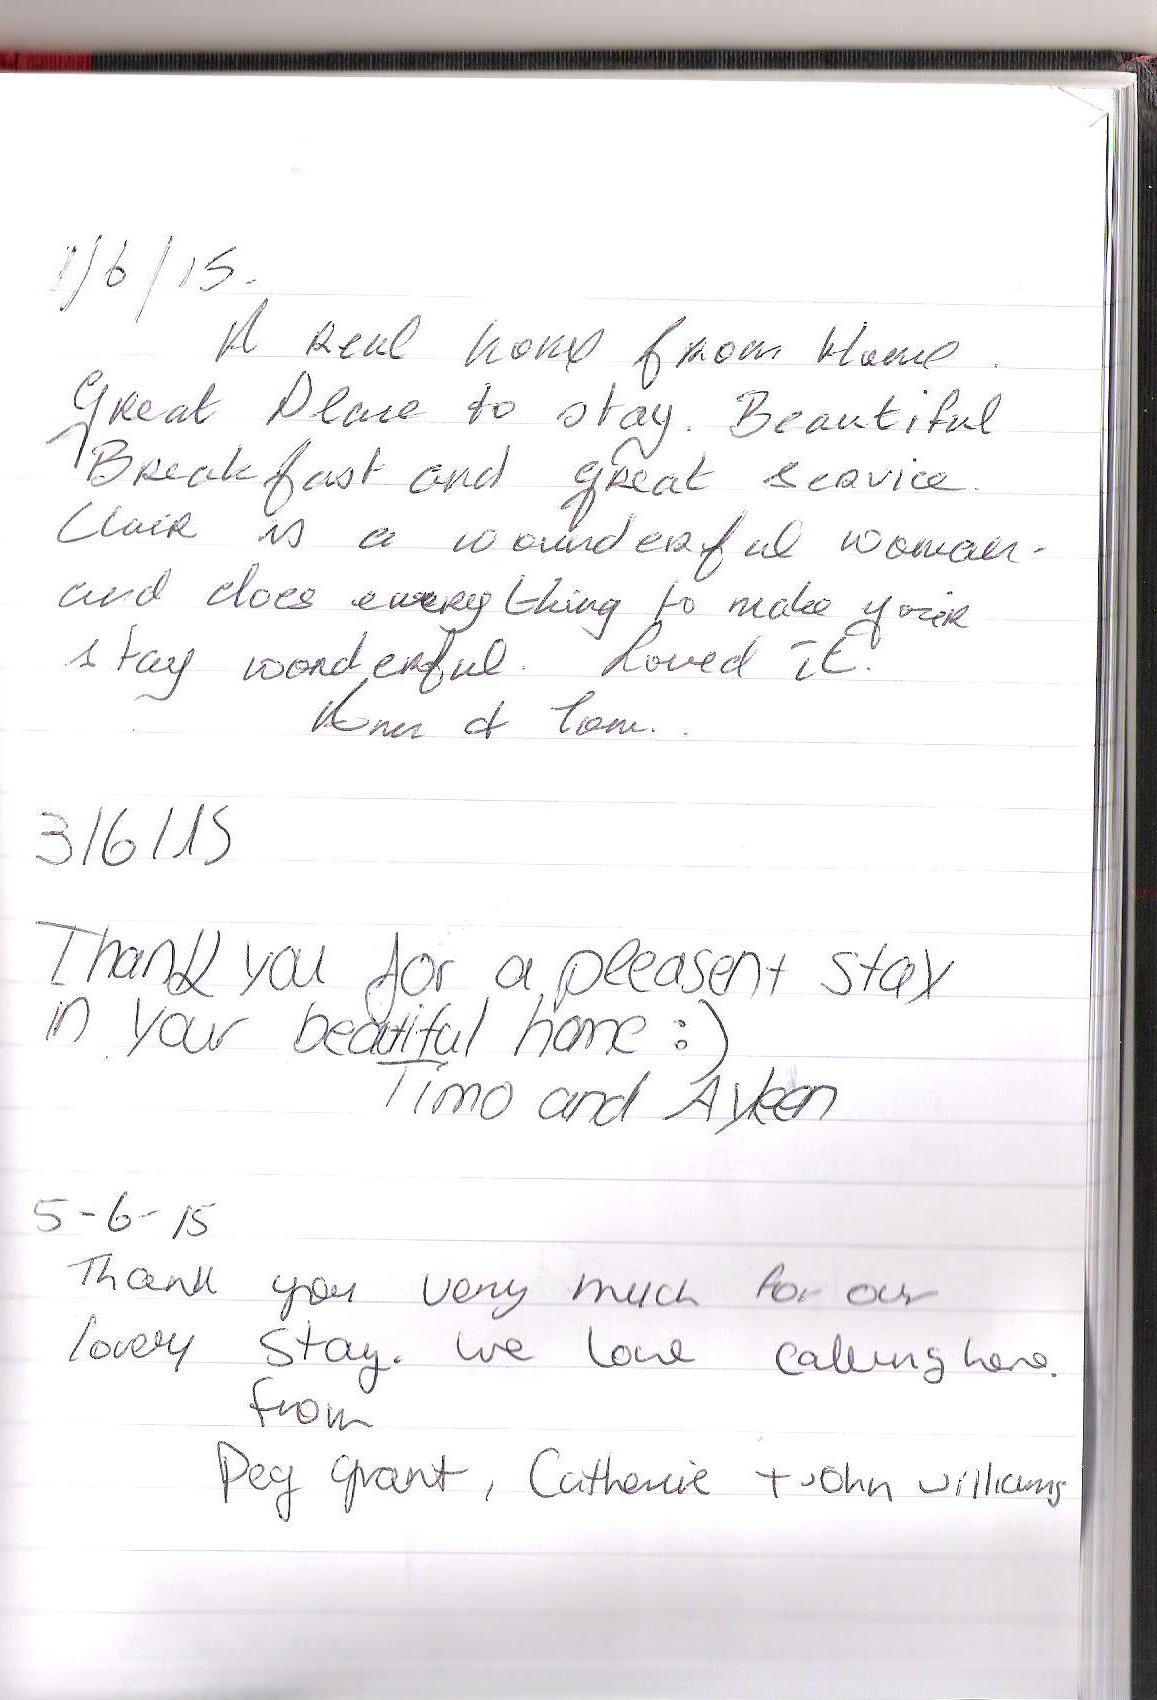 1/6/15.
A Real home from Home.
Great Place to stay. Beautiful
Breakfast and great service.
Clair is a wounderful woman.
and does everything to make your
stay wonderful. Loved it.
& Tom.
3/6/15
Thank you for a pleasent stay
in your beautiful home :)
Timo and Ayleen
5-6-15
Thank you very much for our
lovely stay. We love calling here.
from
Peg Grant, Catherine + John Williams